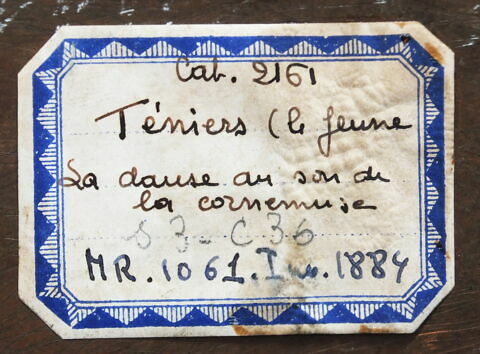 Cat. 2161
Téniers (le Jeune
La danse au son de
la cornemuse
S 3 - C 36
MR. 1061. Inv. 1884